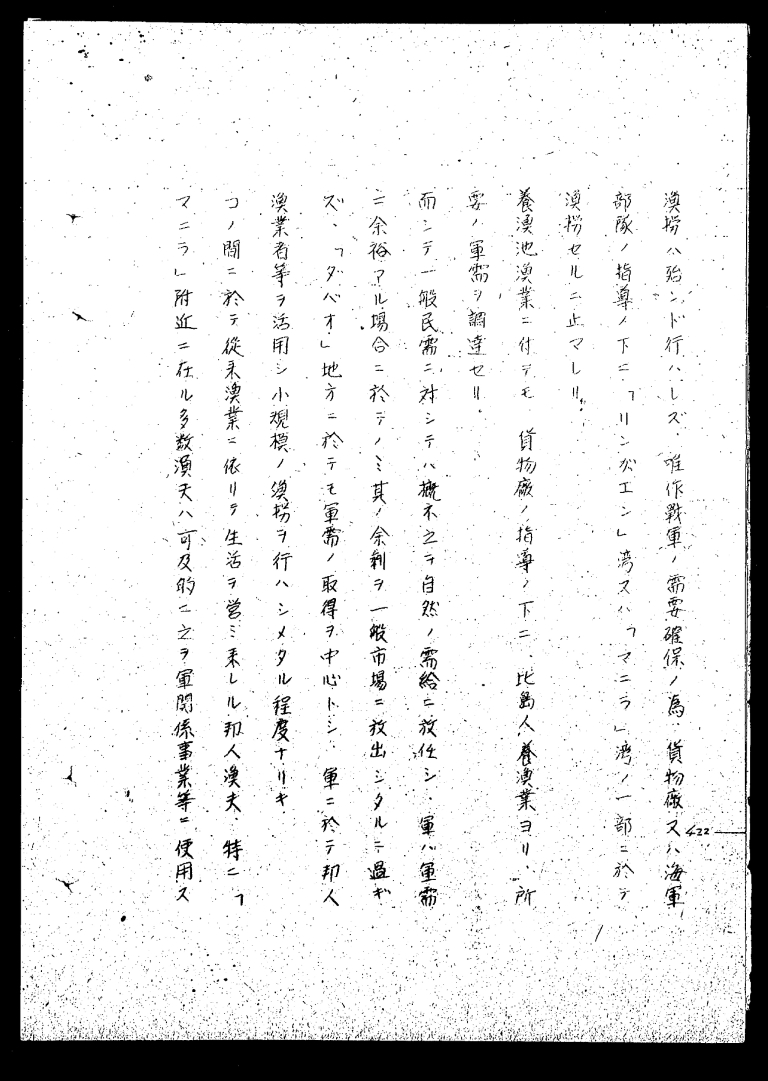 漁撈ハ殆ンド行ハレズ、唯作戰軍ノ需要確保ノ為、貨物廠又ハ海軍
部隊ノ指導ノ下ニ「リンガエン」湾又ハ「マニラ」湾ノ一部ニ於テ
漁撈セルニ止マレリ。
養漁池漁業ニ付テモ 貨物廠ノ指導ノ下ニ、比島人養漁業ヨリ、所
要ノ軍需ヲ調達セリ。
而シテ一般民需ニ対シテハ概ネ之ヲ自然ノ需給ニ放任シ、軍ハ軍需
ニ余裕アル場合ニ於テノミ其ノ余剰ヲ一般市場ニ放出シタルニ過ギ
ズ、「ダバオ」地方ニ於テモ軍需ノ取得ヲ中心トシ、軍ニ於テ邦人
漁業者等ヲ活用シ小規模ノ漁撈ヲ行ハシメタル程度ナリキ
コノ間ニ於テ従来漁業ニ依リテ生活ヲ営ミ来レル邦人漁夫、特ニ「
マニラ」附近ニ在ル多数漁夫ハ可及的ニ之ヲ軍関係事業等ニ使用ス
422